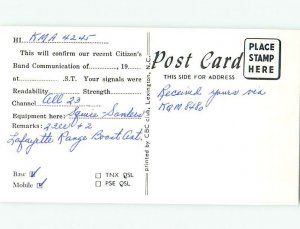 HI KMA 4245
This will confirm our recent Citizen's
Band Communication of , 19
at .S.T. Your signals were
Readability Strength
Channel All 23
Equipment here: Squire-Sanders
Remarks: 23er +2
Lafayette Range Boost Ant.
Base ☑ ☐ TNX QSL
Mobile ☑ ☐ PSE QSL
printed by CBC club, Lexington, N.C.
Post Card
THIS SIDE FOR ADDRESS
PLACE
STAMP
HERE
Received yours via
KQM 8486